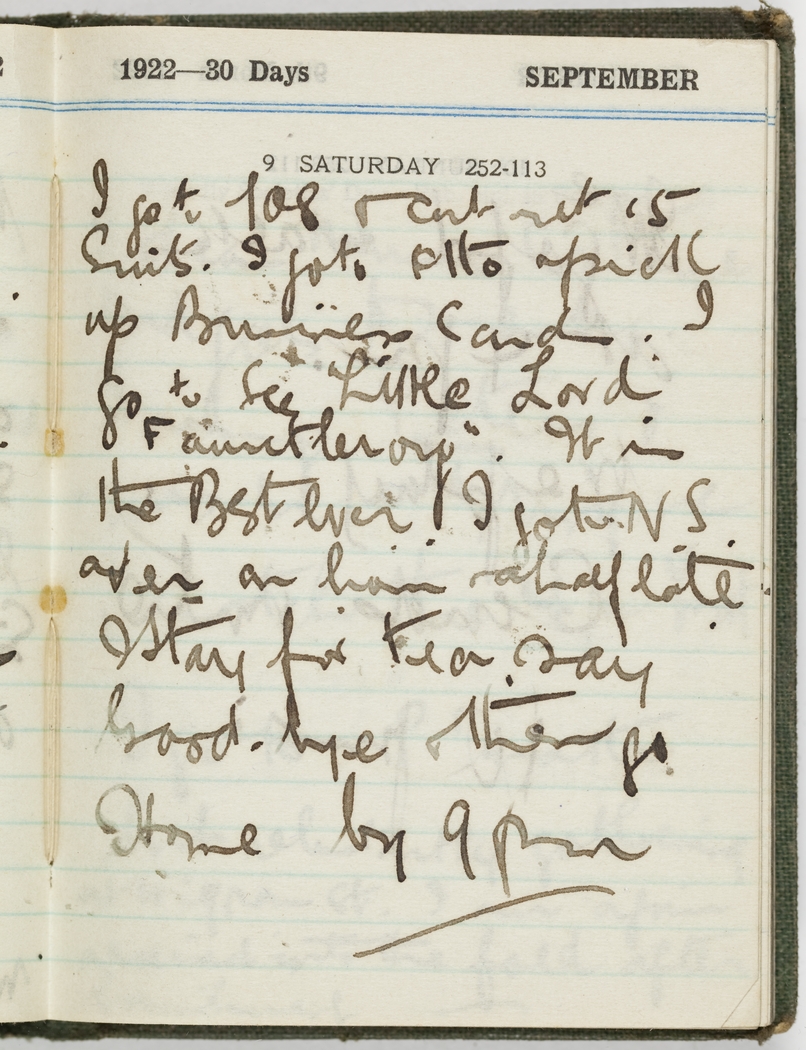 1922—30 Days SEPTEMBER
9 SATURDAY 252-113
I go to 108 & cart out 15
Suits. I go to Otto & pick
up Business Card. I
go to See "Little Lord
Fauntleroy". It is
the Best Ever. I go to N S.
over an hour & a half late
I Stay for tea & say
Good-bye & then go
Home by 9 pm